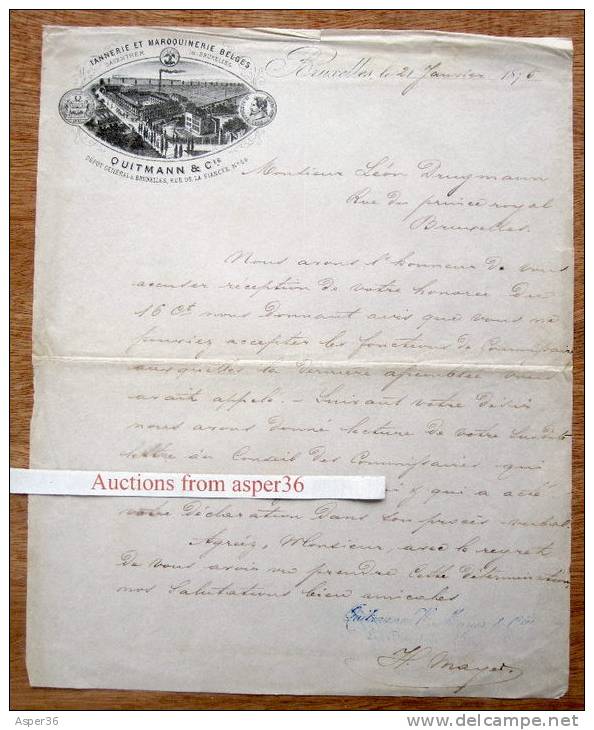 TANNERIE ET MAROQUINERIE BELGES
SAVENTHEM
BRUXELLES
QUITMANN & Cie
DÉPÔT GÉNÉRAL À BRUXELLES, RUE DE LA FIANCÉE
Bruxelles, le 21 Janvier 1876
Monsieur Léon Drugmann
Rue du prince royal
Bruxelles.
Nous avons l'honneur de vous
accuser reception de votre honorée du
16 Ct nous donnant avis que vous ne
pouviez accepter les fonctions de Commissaire
auxquelles la dernière assemblée vous
avait appelé. - Suivant votre désir
nous avons donné lecture de votre susdite
lettre au Conseil des Commissaires qui
Auctions from asper36
qui a acté
votre déclaration dans son procès-verbal.
Agréez, Monsieur, avec le regret
de vous avoir vu prendre cette détermination,
nos salutations bien amicales
H. Mayer
Asper36
http://www.delcampe.net